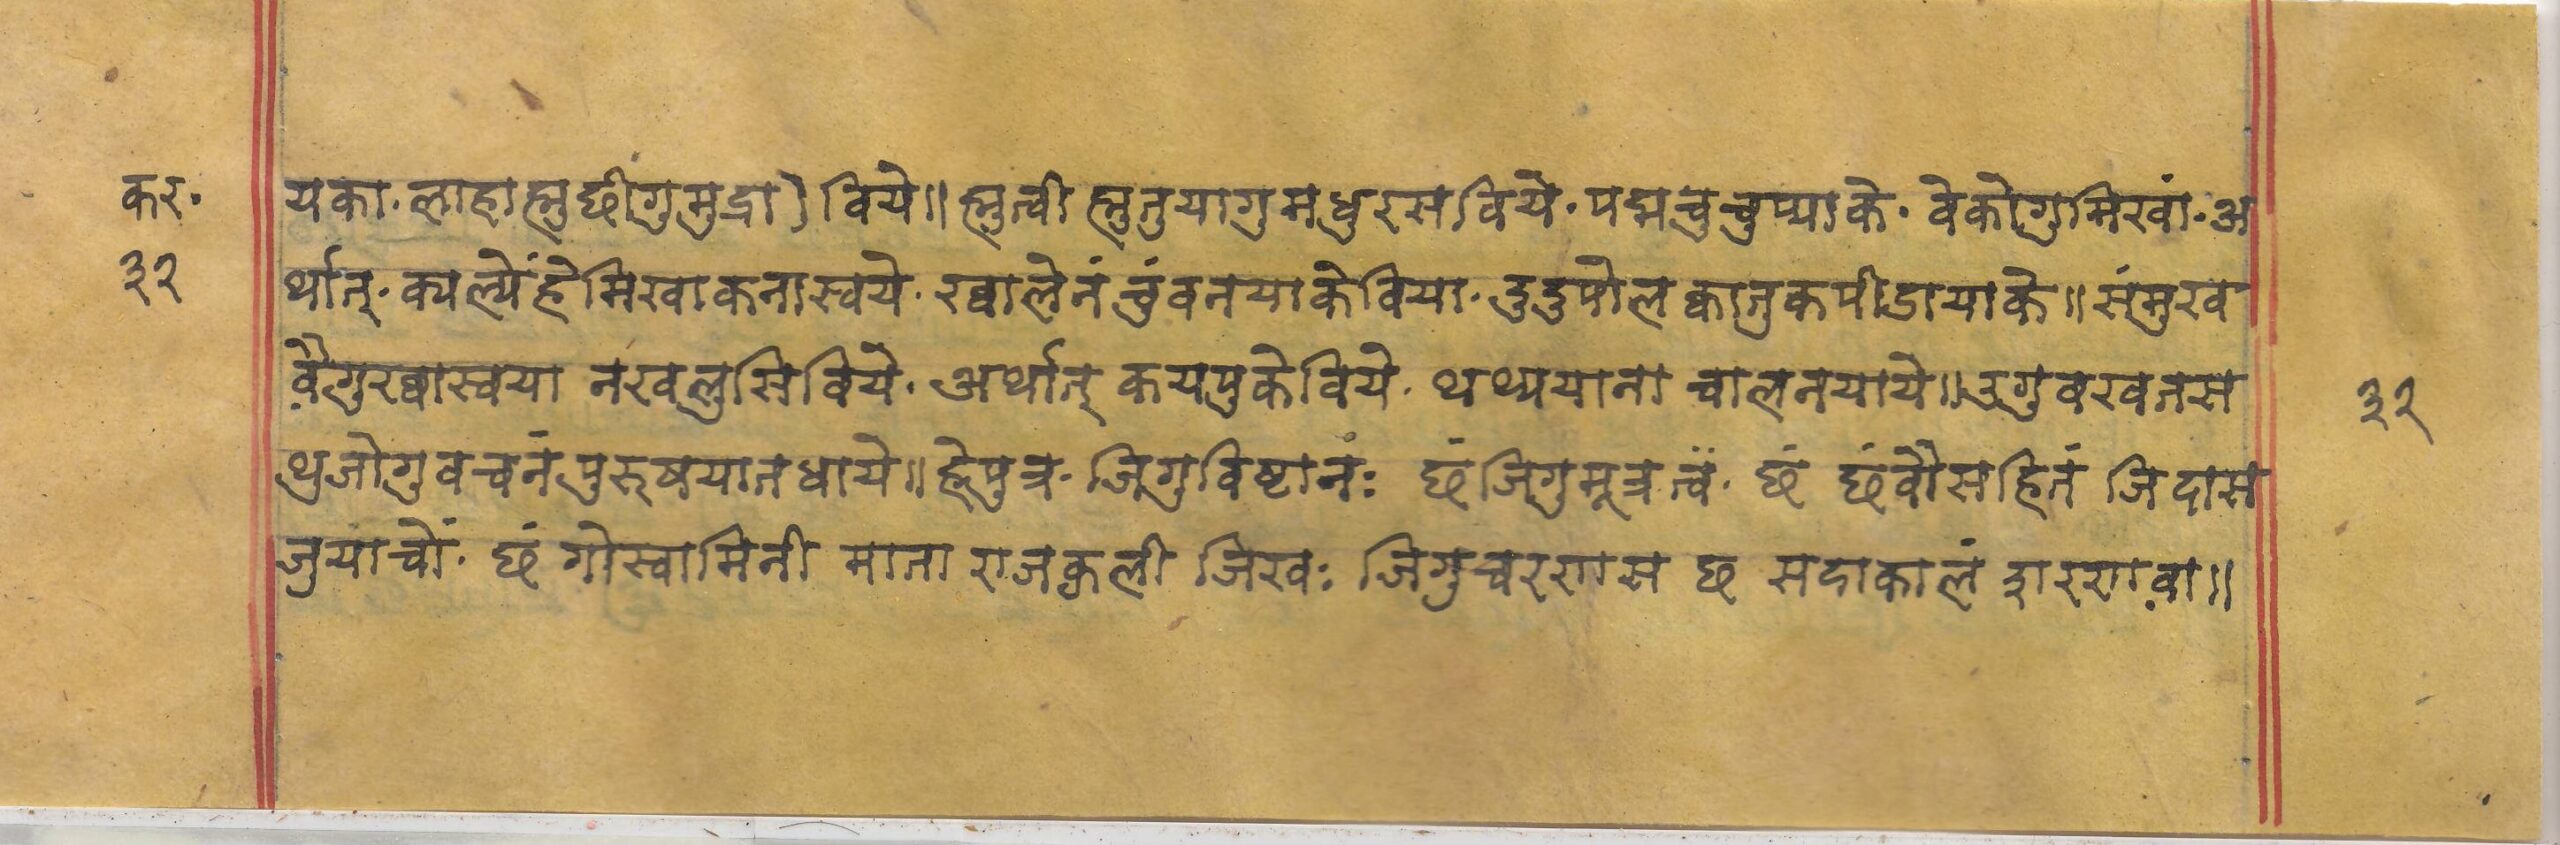 कर॰
३२
यका॰ लाहा ह्नुछीगुमुद्रा) विये॥ ह्नुत्वी ह्नुतुयागु मधुरस विये॰ पद्म चुचुप्याके॰ वेकोगु मिखां॰ अ
र्थात्॰ क्यल्यें हे मिखा कना स्वये॰ ख्वालेनं चुंवन याके विया॰ दुदुपोल क्वातुक पीडायाके॥ संमुख
वैगु ख्वा स्वया नखलुसि विये॰ अर्थात् कयपुके विये॰ थथ्ययाना चालन याये॥ उगु वखतस
थुजोगु वचनं पुरुषयात धाये॥ हे पुत्र॰ जिगु विष्टा नं: छं जिगु मूत्र त्वं॰ छं छं वौ सहितं जि दास
जुया चों॰ छं गोस्वामिनी माता राजकुली जि ख: जिगु चरणस छ सदाकालं शरण वा॥
३२